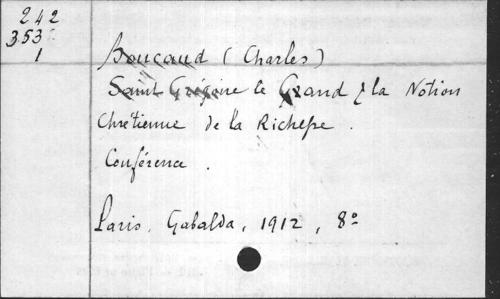 242
353
1
Boucaud (Charles)
Saint Grégoire le Grand & la Notion
Chretienne de la Richesse.
Conférence.
Paris, Gabalda, 1912, 8°